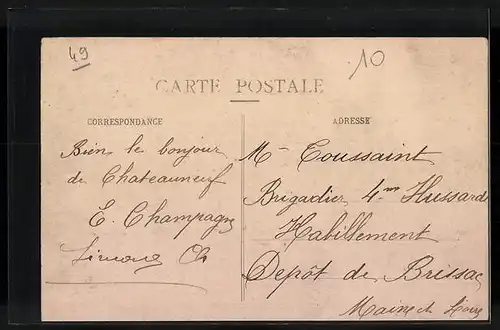 49
10
CARTE POSTALE
CORRESPONDANCE
ADRESSE
Bien le bonjour
de Chateauneuf
E. Champagne
Simone Ch
Mr Toussaint
Brigadier 4me Hussard
Habillement
Depôt de Brissac
Maine et Loire